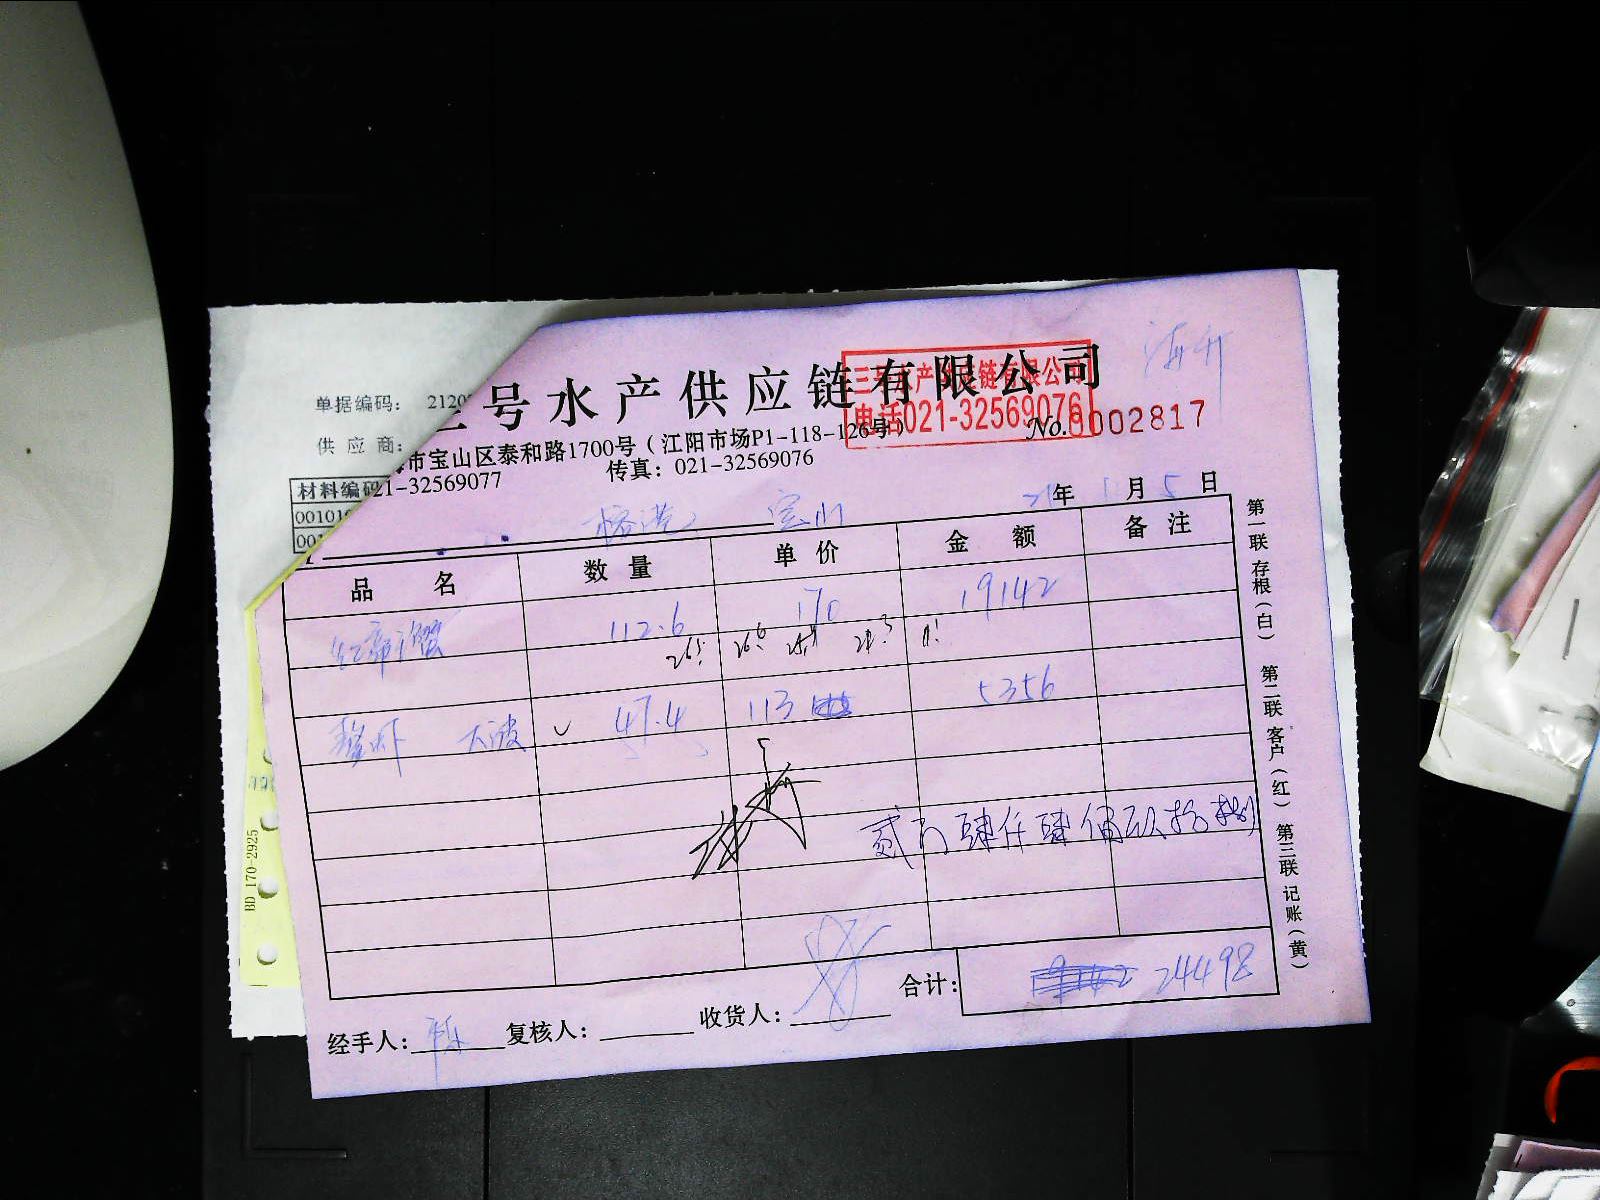 单据编码: 2120
号水产供应链有限公司
三号水产供应链有限公司
电话021-32569076
海升
供应商:
市宝山区泰和路1700号（江阳市场P1-118-126号）
No. 0002817
材料编码
21-32569077 传真: 021-32569076
001010
001
宝山 21年 1月 5日
品名 数量 单价 金额 备注
红帝王蟹 112.6 170 19142
26.5 26.6 24.3
龙虾 大波 47.4 113 5356
贰万肆仟肆佰玖拾捌
合计: 24498
经手人: 复核人: 收货人:
第一联 存根（白） 第二联 客户（红） 第三联 记账（黄）
BD 170-2925